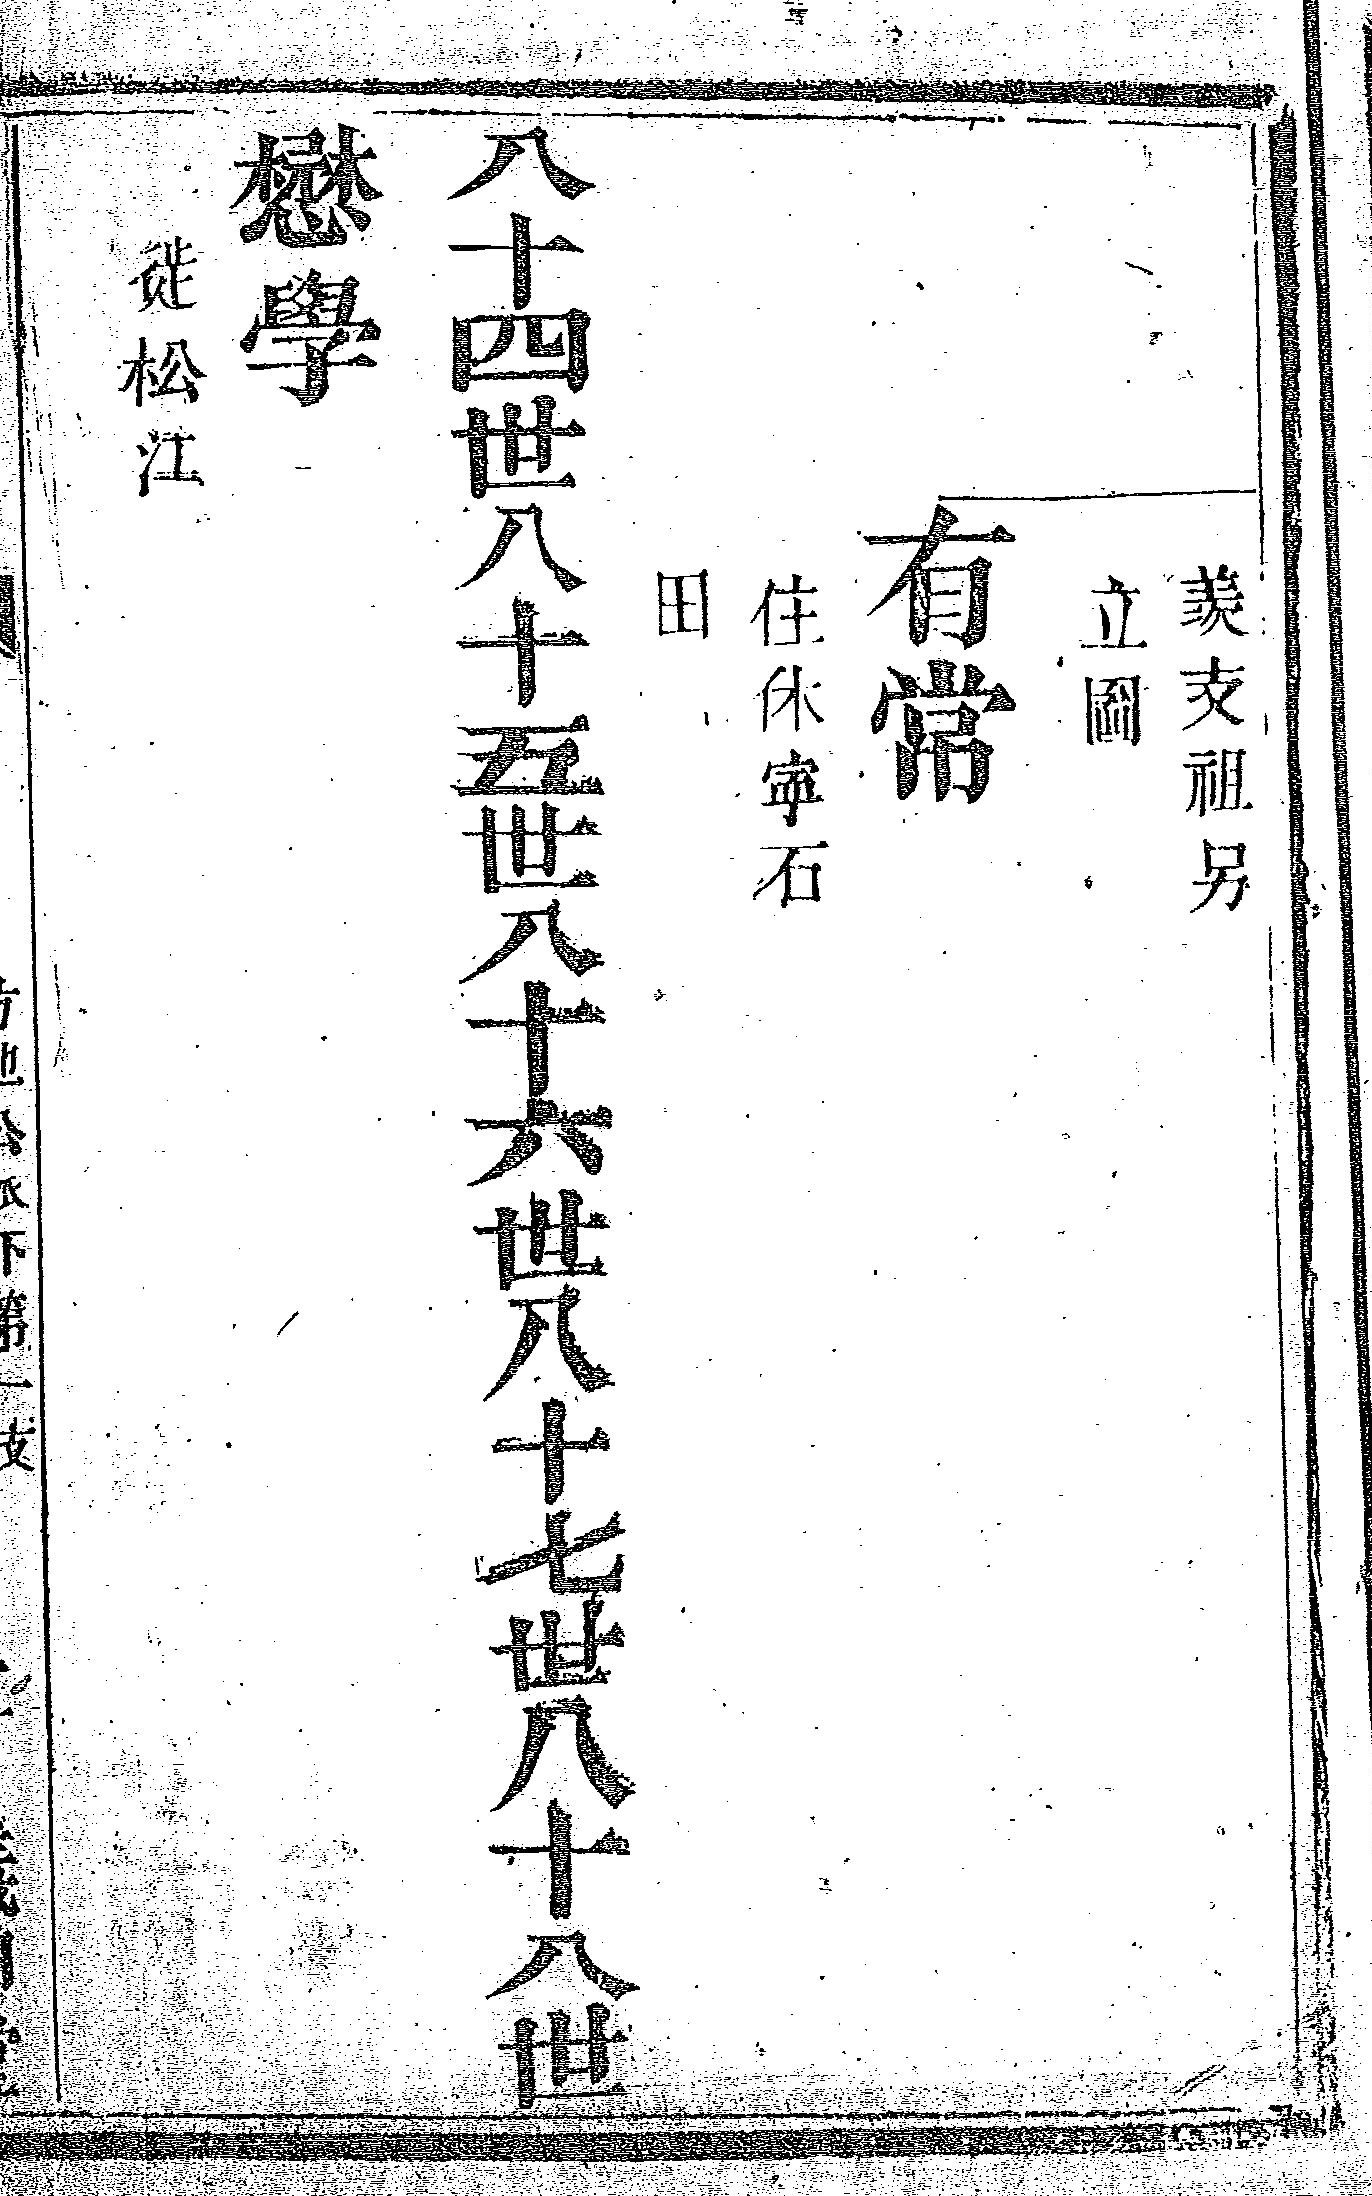 羨支祖另
立圖
有常
住休寧石
田
八十四世八十五世八十六世八十七世八十八世
懋學
徙松江
方地公派下第一支